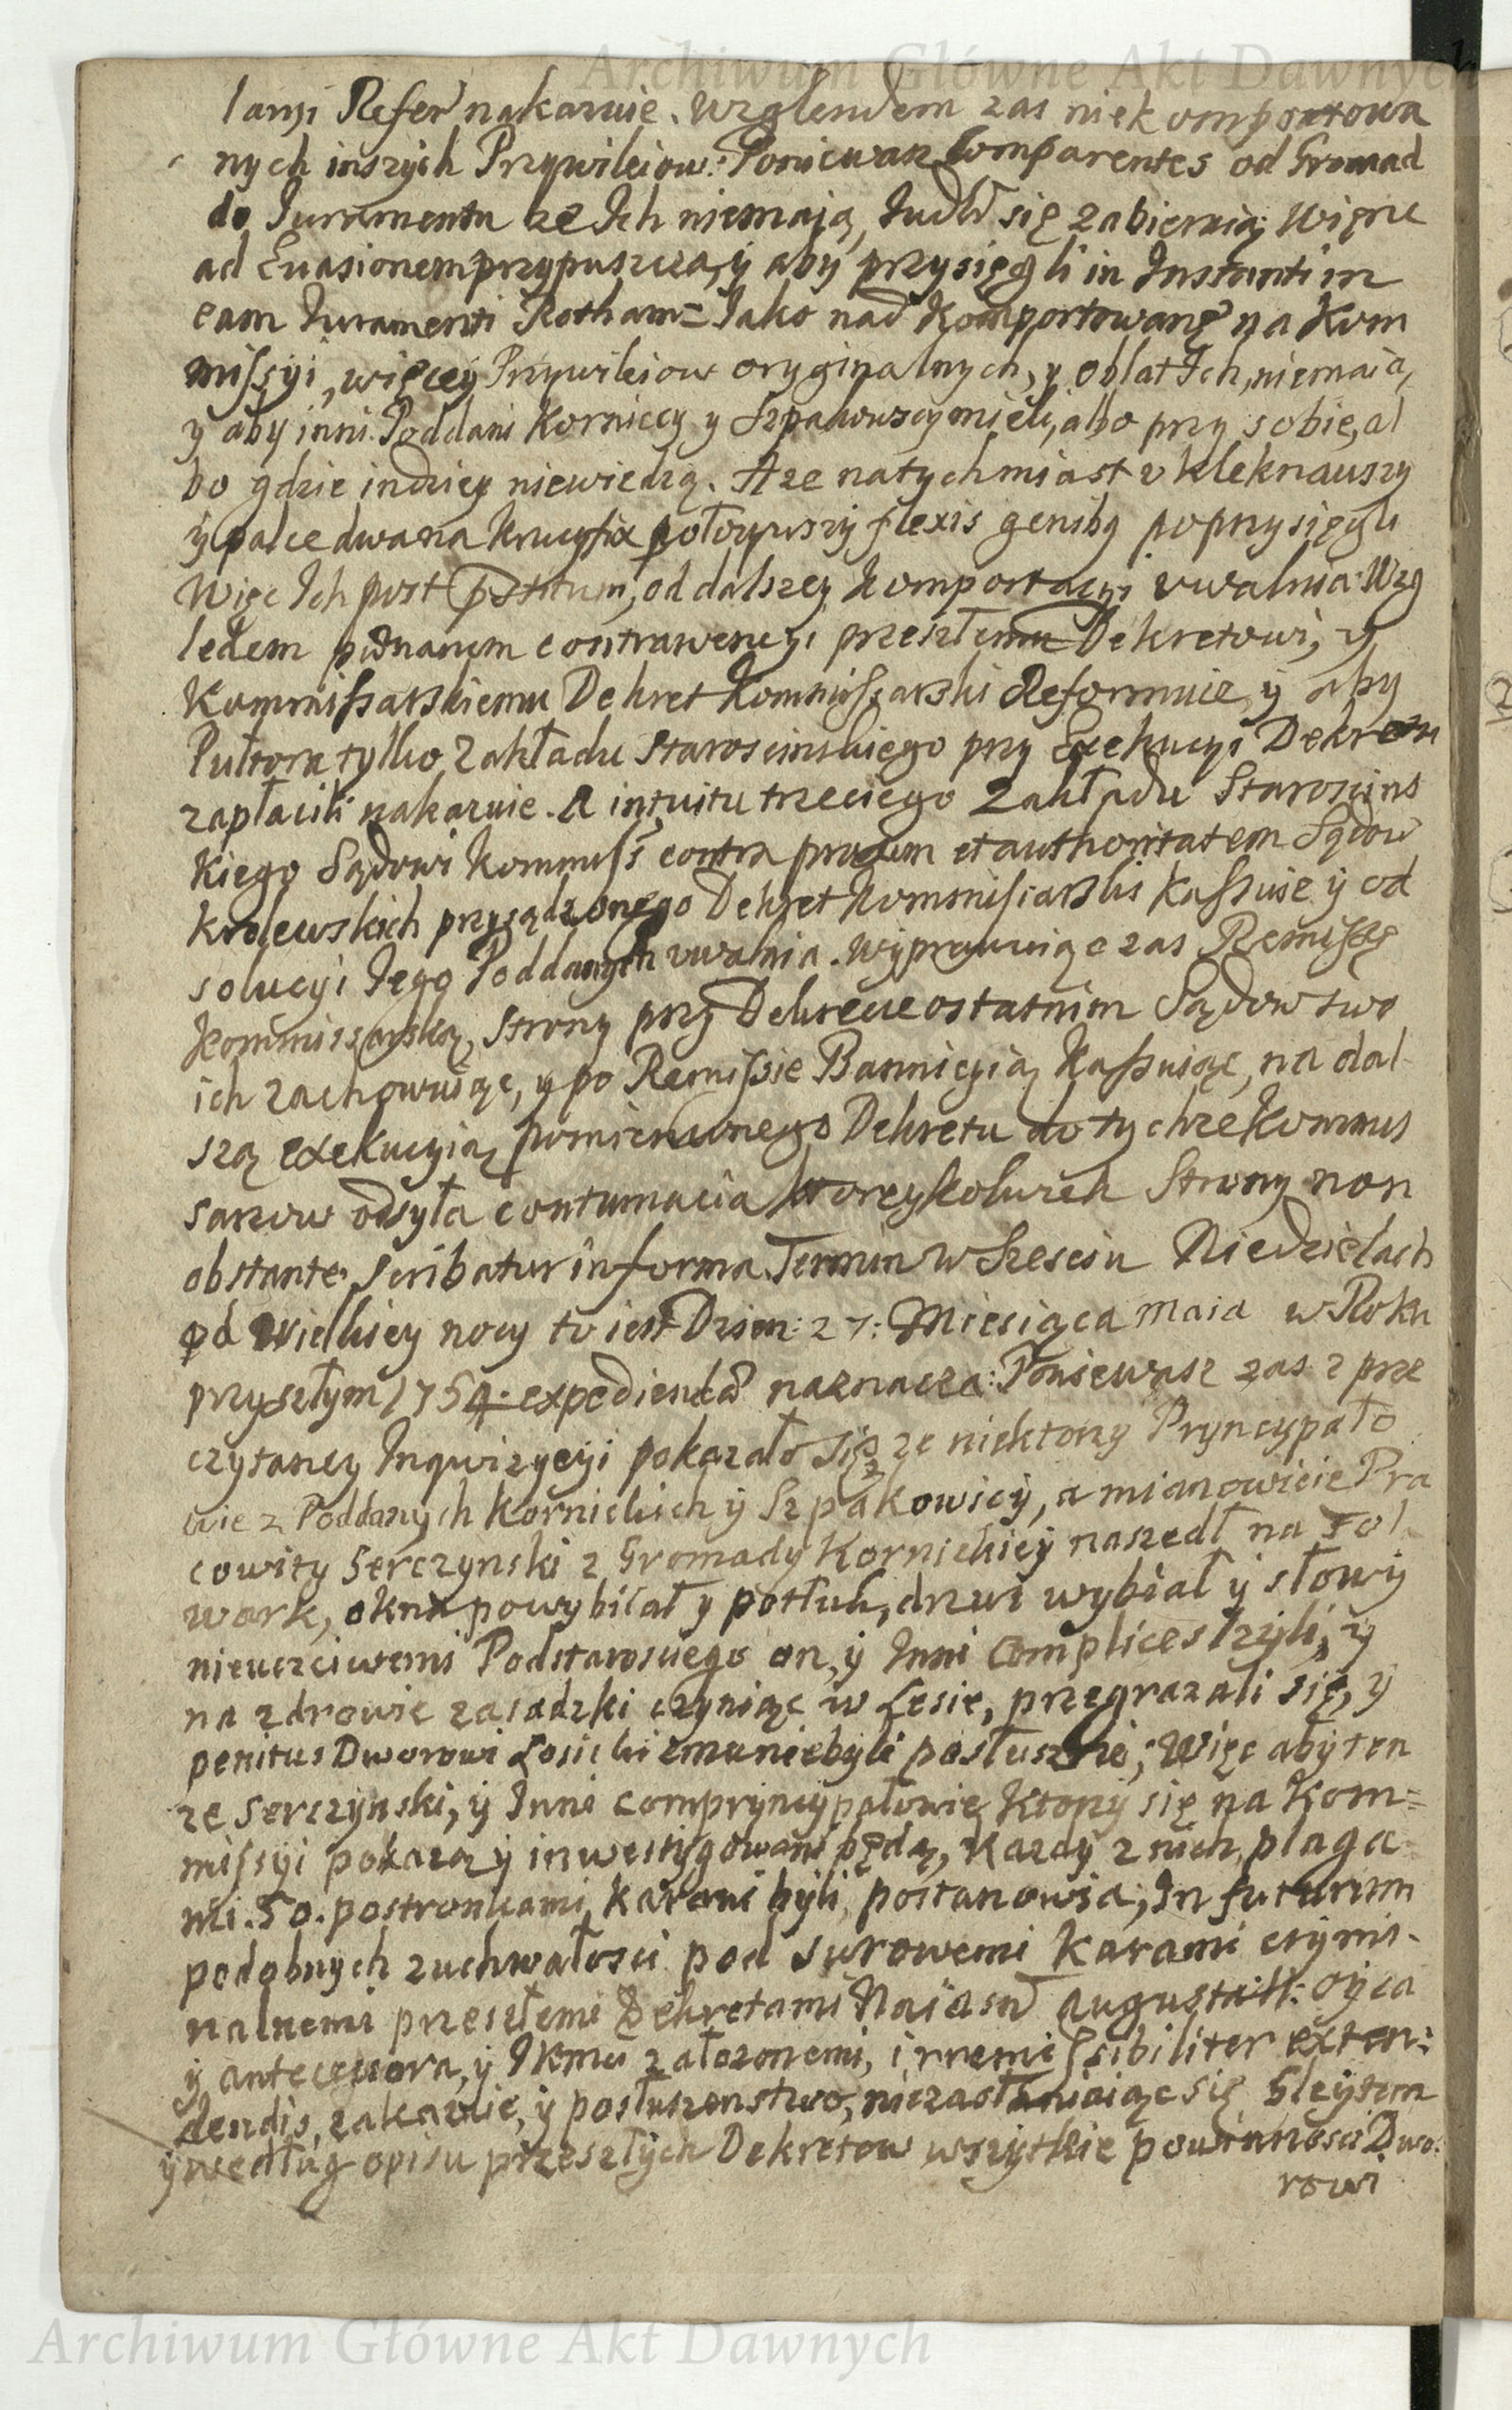 Archiwum Główne Akt Dawnych
lanÿi Refer nakazuie. Wzglendem zas niekomportowa
nych inszych Przywileiow: Poniewasz Comparentes od Gromad
do Juramentu ze Ich niemaią, się zabieraią, Więnc
ad Euasionem przypuszcza, ÿ aby przysięgli in Instanti in
eam Juramenti Rotham = Jako nad Komportowane na Kom
missyi, więceÿ Przywileiow oryginalnych, y oblat Ich, niemaią,
ÿ aby inni Poddani Korniccy y Szpakowscy mieli, albo przy sobie, al
bo gdzie indzieÿ niewiedzą. A ze natychmiast vkleknąwszy
ÿ palce dwa na Krucyfix położywszÿ flexis genibg poprzysięgli
Więc Ich post od dalszey Komportacyi vwalnia. Wzg
ledem contrawencyi przeszłemu Dekretowi, y
Kommissarskiemu Dekret Kommissarski Reformuie, ÿ aby
Pułtora tylko Zakładu Staroscinskiego przy Exekucyi Dekretu
zapłacili nakazuie. A intuitu trzeciego Zakładu Staroscins
kiego Sądowi Kommiss contra et authoritatem Sądow
Krolewskich przysądzonego Dekret Kommissarski Kassuie ÿ od
solucyi Jego Poddanych vwalnia. Wyprawuiąc zas Remissę
Kommissarską, Strony przy Dekrecie ostatnim Sądow swo
ich zachowuiąc, y po Remissie Bannicyią Kassuiąc, na dal
szą exekucyią pomienionego Dekretu do tychze Kommis
sarzow odsyła contumacia ktoreykolwiek Strony non
obstante. Scribatur in forma. Termin w Szesciu Niedzielach
od Wielkiey nocy to iest Dzien: 27: Miesiąca Maia w Roku
przyszłym 1754 expediendae naznacza: Poniewasz zas z prze
czytaney Inqwizycyi pokazało się, ze niektorzy Pryncypało
wie z Poddanych Kornickich ÿ Szpakowscÿ, a mianowicie Pra
cowity Serczynski z Gromadÿ Kornickieÿ naszedł na Fol
wark, okna powybiiał y potłuk, drzwi wybiał ÿ słowÿ
nieuczciwemi Podstarosciego on, ÿ Inni Complices lzyli, ÿ
na zdrowie zasadzki czyniąc w Lesie, przegrazali się, ÿ
penitus Dworowi Łosickiemu niebyli posłuszni; Więc aby ten
ze Serczynski, ÿ Inni compryncypałowie, Ktorzÿ się na Kom=
missyi pokazą ÿ inwestÿgowani będą, Kazdÿ z nich plaga
mi. 50. postronkami Karani byli, postanowia; In futurum
podobnych zuchwałosci pod surowemi Karami crymi-
nalnemi przeszłemi Dekretami Naiasn Augusta II: oyca
ÿ antecessora, y JKmci załozonemi, irremissibiliter exten:
dendis, zakazuie, ÿ posłuszenstwo, niezasłaniaiąc się Gleytem
ÿ według opisu przeszłych Dekretow wszystkie powinnosci Dwo:
rowi
Archiwum Główne Akt Dawnych